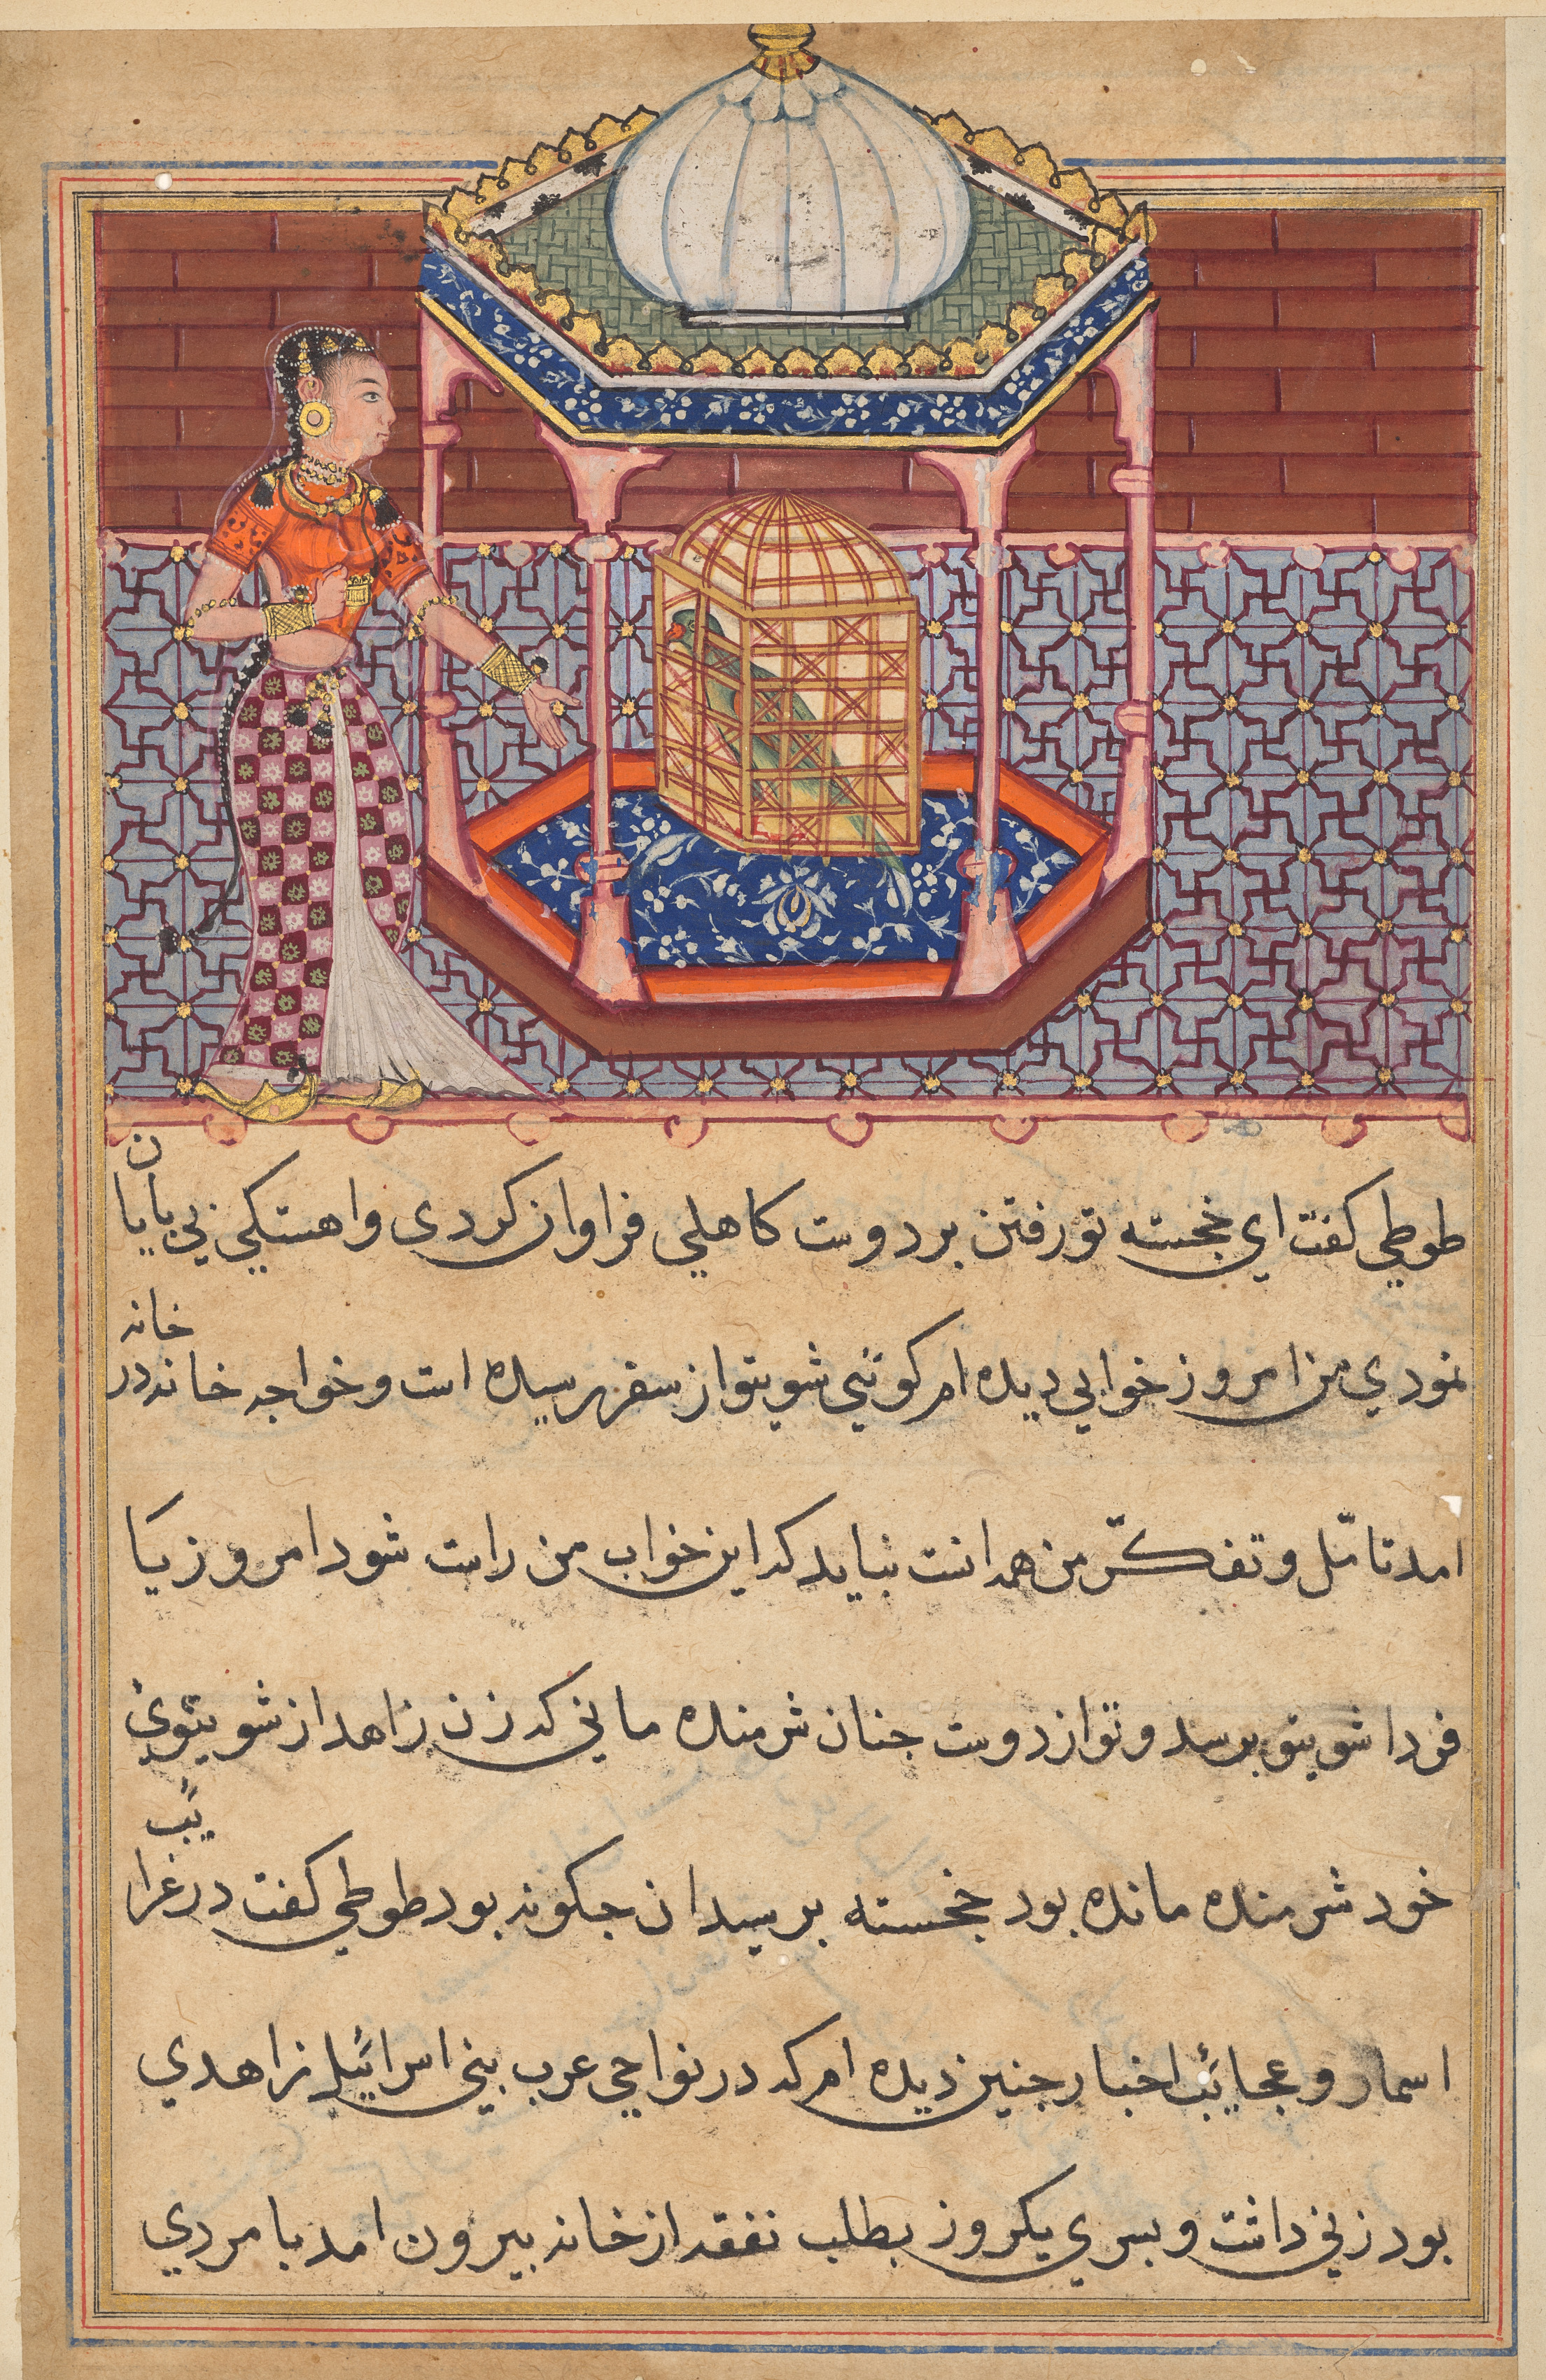 طوطي كفت اي خجسته تو رفتن بر دوست كاهلي فراوان كردي واهستكي بي پايان
نمودي من امروز خوابي ديده ام كوئي شوي تو از سفر رسيده است و خواجه خانه در خانه
امد تامّل و تفكّر من همه انست نبايد كه اين خواب من راست شود امروز يا
فردا شوي تو برسد و تو از دوست جنان شرمنده ماني كه زن زاهد از شوي
خود شرمنده مانده بود خجسته برسيد ان جكونه بود طوطي كفت در غرايب
اسمار و عجائب اخبار جنين ديده ام كه در نواحي عرب بني اسرائيل زاهدي
بود زني داشت و بسري يكروز بطلب نفقه از خانه بيرون امد با مردي